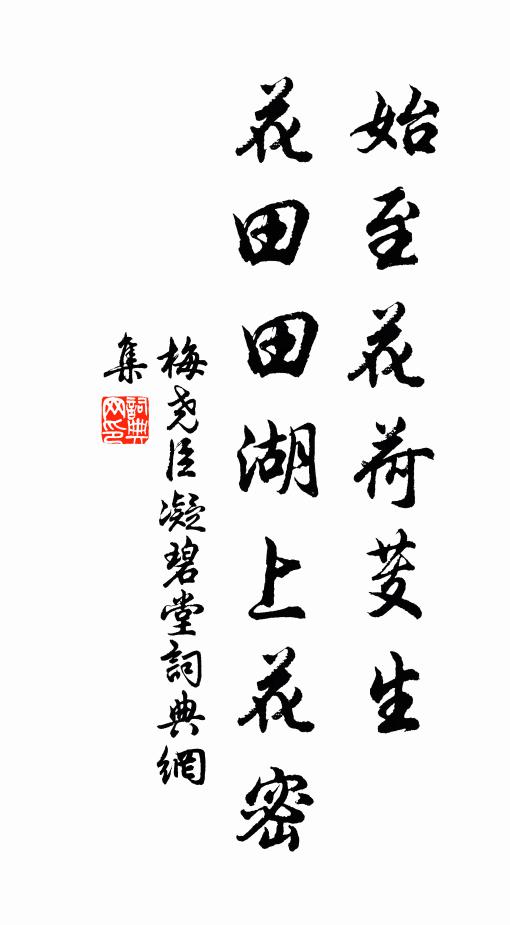 始至花荷芰生
花田田湖上花密
梅尧臣凝碧堂詞典網
集
詞典网印